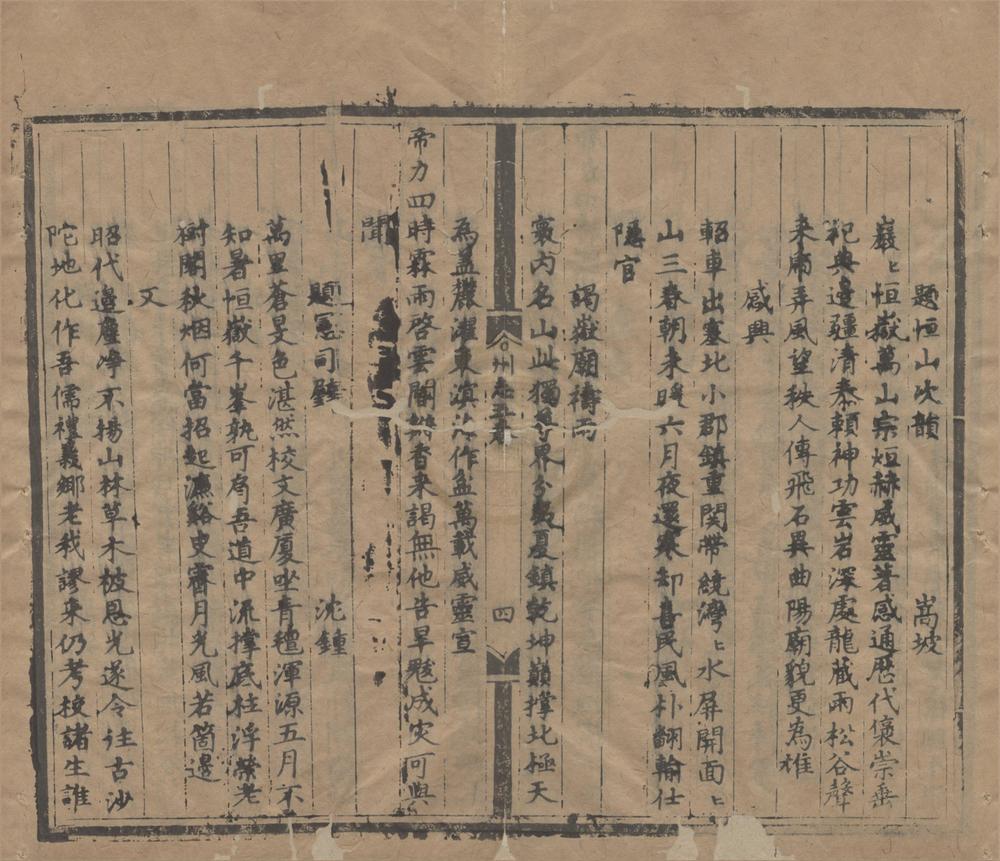 題恒山次韻 嵩坡
巖〻恒嶽萬山宗烜赫威靈著感通歷代褒崇垂
祀典邊疆清泰賴神功雲岩深處龍藏雨松谷聲
来虎弄風望秩人傳飛石異曲陽廟貌更為雄
感興
軺車出塞北小郡鎮重関帶繞灣〻水屏開面〻
山三春朝未暖六月夜還寒却喜民風朴翻輸仕
隠官
謁嶽廟禱雨
寰内名山此獨尊界分夷夏鎮乾坤巔撑北極天
州志五卷 四
為盖麓濯東滇海作盆萬載威靈宣
帝力四時霖雨啓雲閽辦香来謁無他告旱魃成灾可與
聞
題憲司壁 沈鍾
萬里蒼旻色湛然校文廣廈坐青氊渾源五月不
知暑恒嶽千峯孰可肩吾道中流撑底柱浮榮老
樹閣秋烟何當招起濂谿叟霽月光風若箇邊
又
昭代邊塵凈不揚山林草木被恩光遂令往古沙
陀地化作吾儒禮義鄉老我謬来仍考校諸生誰